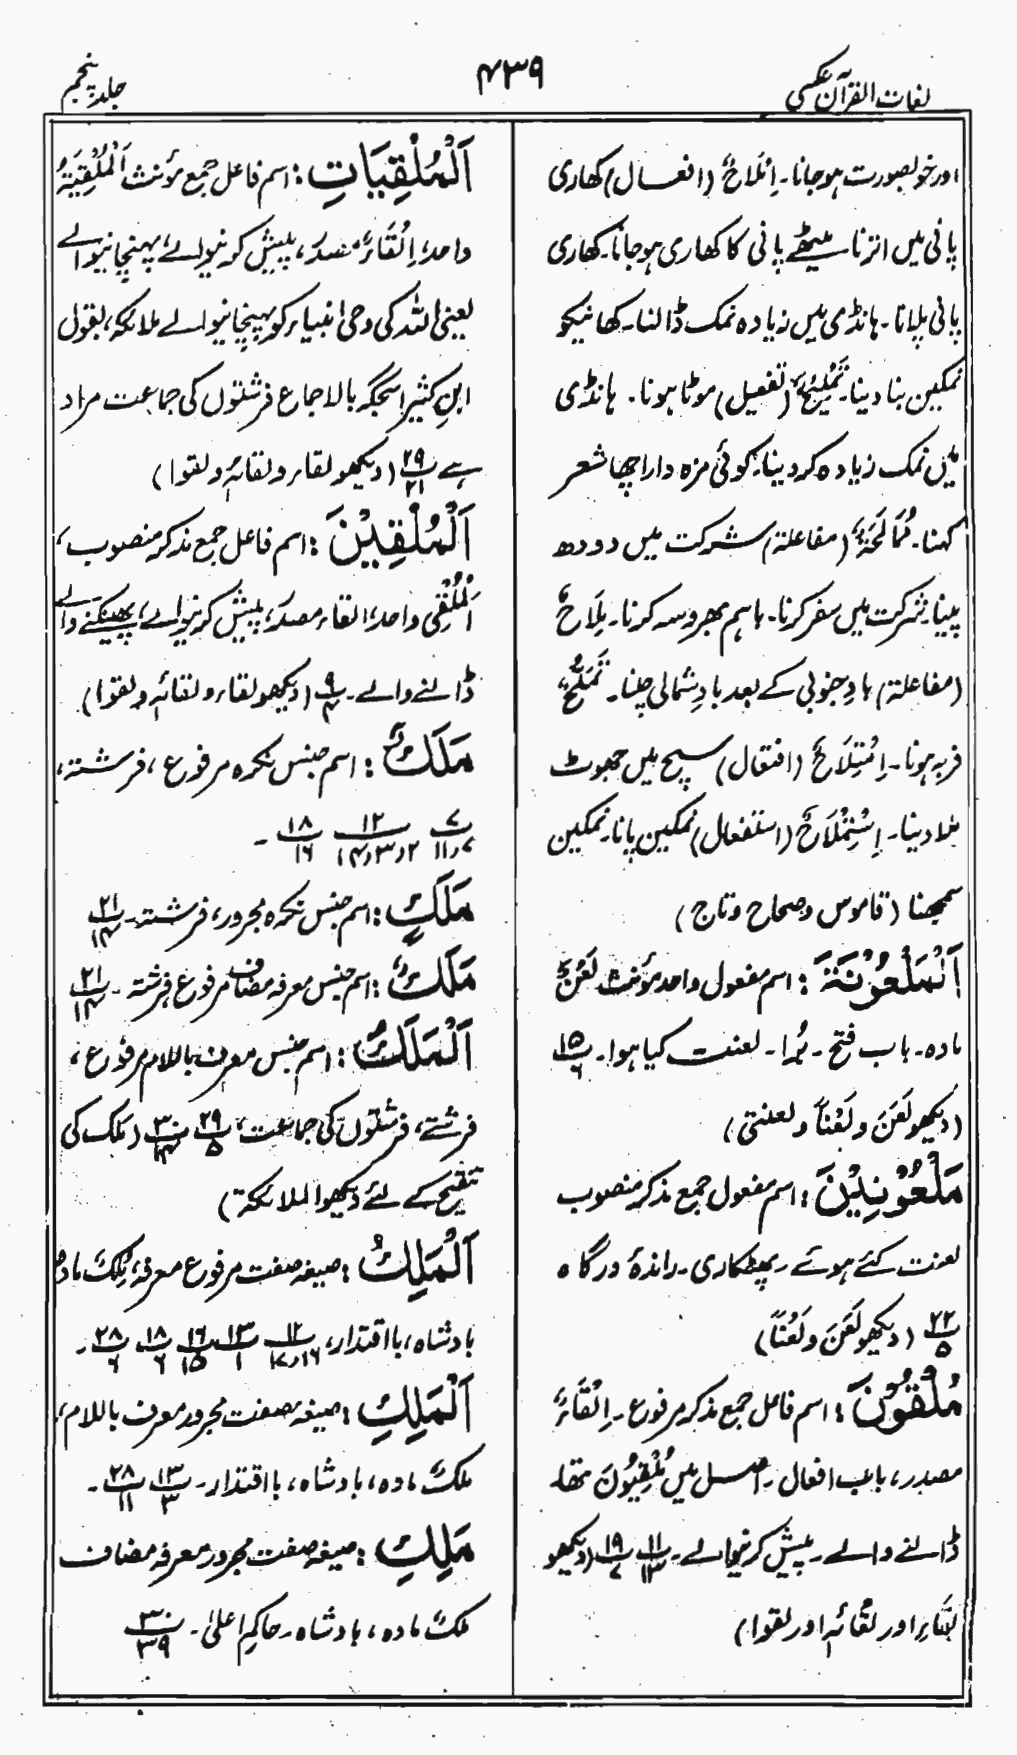 لغات القرآن عکسی
۴۳۹
جلد پنجم
اور خوبصورت ہوجانا۔ اِمْلَاحٌ (افعال) کھاری
پانی میں اترنا میٹھے پانی کا کھاری ہوجانا۔ کھاری
پانی پلانا۔ ہانڈی میں زیادہ نمک ڈالنا۔ کھانیکو
نمکین بنا دینا۔ تَمْلِیْحٌ (تفعیل) موٹا ہونا۔ ہانڈی
میں نمک زیادہ کردینا۔ کوئی مزہ دار اچھا شعر
کہنا۔ مُمَالَحَۃٌ (مفاعلۃ) شرکت میں دودھ
پینا۔ شرکت میں سفر کرنا۔ باہم بھروسہ کرنا۔ مِلَاحٌ
(مفاعلۃ) بادِ جنوبی کے بعد بادِ شمالی چلنا۔ تَمَلُّحٌ
فربہ ہونا۔ اِمْتِلَاحٌ (افتعال) سچ میں جھوٹ
ملا دینا۔ اِسْتِمْلَاحٌ (استفعال) نمکین پانا۔ نمکین
سمجھنا (قاموس وصحاح وتاج)
اَلْمَلْعُوْنَۃَ : اسم مفعول واحد مؤنث لَعْنٌ
مادہ۔ باب فتح۔ بُرا۔ لعنت کیا ہوا۔ ۱۵/۶
(دیکھو لَعَنَ و لَعْنًا و لعنتی)
مَلْعُوْنِیْنَ : اسم مفعول جمع مذکر منصوب
لعنت کئے ہوئے۔ پھٹکاری۔ راندۂ درگاہ
۲۲/۵ (دیکھو لَعَنَ و لَعْنًا)
مُلْقُوْنَ : اسم فاعل جمع مذکر مرفوع۔ اِلْقَاءٌ
مصدر، باب افعال۔ اصل میں مُلْقِیُوْنَ تھا۔
ڈالنے والے۔ پیش کرنیوالے۔ ۱۱/۱۳ ۱۹/۷ (دیکھو
لِقَاءِ اور لِقَائِہٖ اور لقوا)
اَلْمُلْقِیَاتِ : اسم فاعل جمع مؤنث اَلْمُلْقِیَۃُ
واحد، اِلْقَاءٌ مصدر، پیش کرنیوالے، پہنچانیوالے
یعنی اللہ کی وحی انبیاء کو پہنچانیوالے ملائکہ، بقول
ابنِ کثیر اسجگہ بالاجماع فرشتوں کی جماعت مراد
ہے ۲۹/۲۱ (دیکھو لقاء ولقائہٖ ولقوا)
اَلْمُلْقِیْنَ : اسم فاعل جمع مذکر منصوب،
اَلْمُلْقِی واحد، القاء مصدر، پیش کرنیوالے، پھینکنے والے
ڈالنے والے۔ ۹/۴ (دیکھو لقاء ولقائہٖ ولقوا)
مَلَکٌ : اسم جنس نکرہ مرفوع، فرشتہ،
۷/۱۱،۷ ۱۲/۲،۳،۱۴ ۱۸/۱۶ ۔
مَلَکٍ : اسم جنس نکرہ مجرور، فرشتہ۔ ۲۱/۱۴
مَلَکُ : اسم جنس معرفہ مضاف مرفوع، فرشتہ۔ ۲۱/۱۴
اَلْمَلَکُ : اسم جنس معرف باللام مرفوع،
فرشتے، فرشتوں کی جماعت، ۲۹/۵ ۳۰/۱۴ (ملک کی
تنقیح کے لئے دیکھو الملائکۃ)
اَلْمَلِکُ : صیغہ صفت مرفوع معرفہ، مُلْکٌ مادہ
بادشاہ، بااقتدار، ۱۲/۱۶،۱۷ ۱۳/۱ ۱۶/۱۵ ۱۸/۶ ۲۸/۶ ۔
اَلْمَلِکِ : صیغہ صفت مجرور معرف باللام،
ملکٌ مادہ، بادشاہ، بااقتدار۔ ۱۳/۳ ۲۸/۱۱ ۔
مَلِکِ : صیغہ صفت مجرور معرفہ مضاف
ملکٌ مادہ، بادشاہ۔ حاکمِ اعلیٰ۔ ۳۰/۳۹